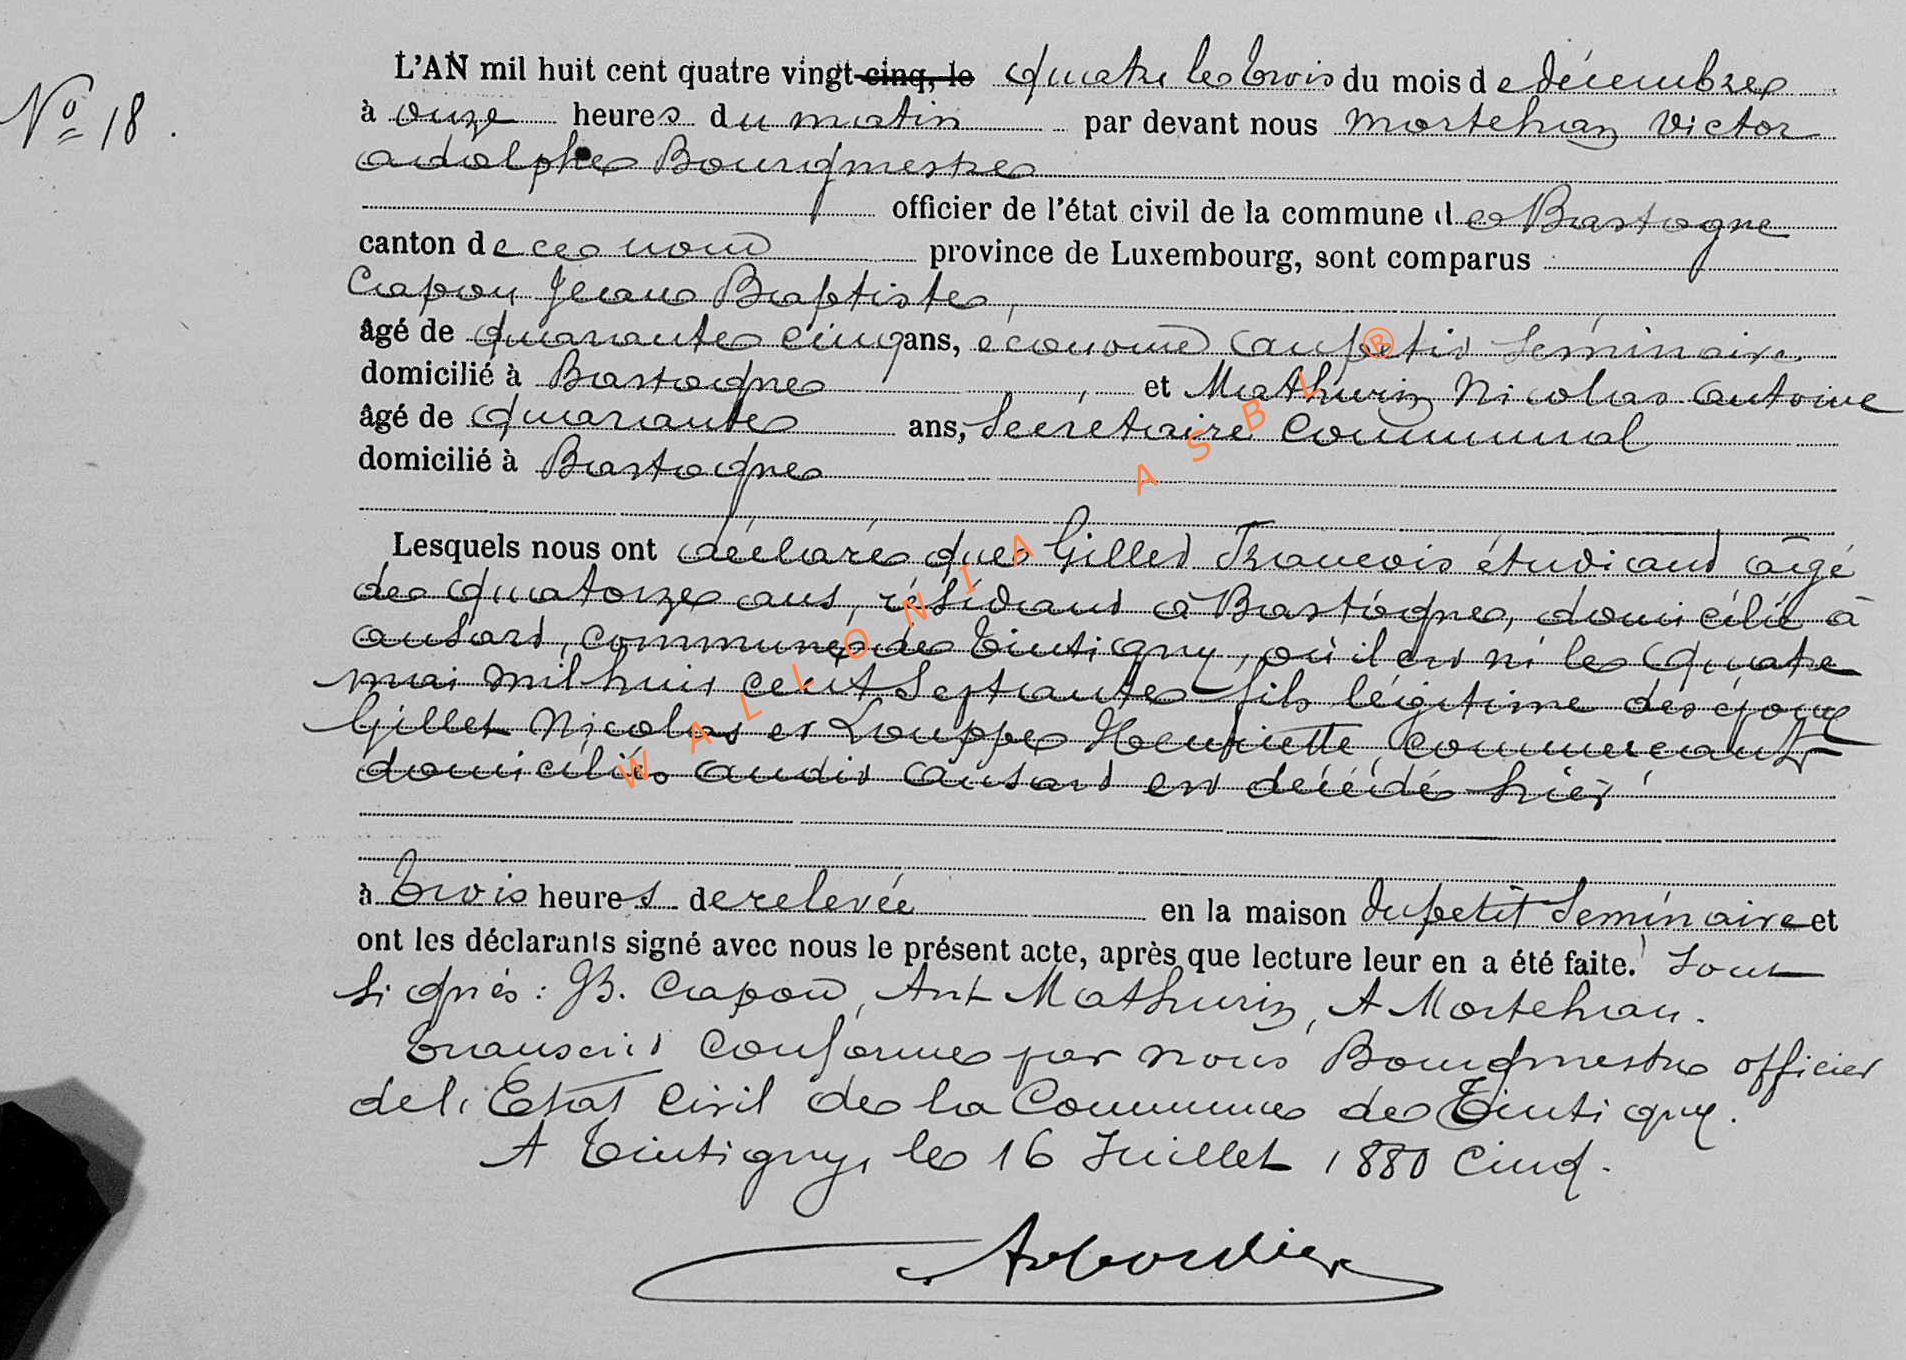 N° 18.
L'AN mil huit cent quatre vingt cinq, le quatre le trois du mois de décembre
à onze heures du matin par devant nous Mortehan Victor
adolphe Bourgmestre
officier de l'état civil de la commune de Bastogne
canton de ce nom province de Luxembourg, sont comparus
Crapon Jean Baptiste,
âgé de quarante cinq ans, econome au petit Séminaire,
domicilié à Bastogne et Mathurin Nicolas antoine
âgé de quarante ans, Secretaire Communal
domicilié à Bastogne
Lesquels nous ont déclaré que Gillet François étudiant âgé
de quatorze ans, résidant à Bastogne, domicilié à
ansart, commune de Tintigny, où il est né le quatre
mai mil huit cent Septante fils légitime des époux
Gillet Nicolas et Louppe Henriette, commercants
domiciliés audit ansart est décédé hier
à trois heures de relevée en la maison du petit Séminaire et
ont les déclarants signé avec nous le présent acte, après que lecture leur en a été faite. Sont
Signés: JB. Crapon, Ant Mathurin, A Mortehan.
Transcrit conforme par nous Bourgmestre officier
de l'Etat Civil de la Commune de Tintigny.
A Tintigny, le 16 Juillet 1880 cinq.
WALLONIA ASBL ®